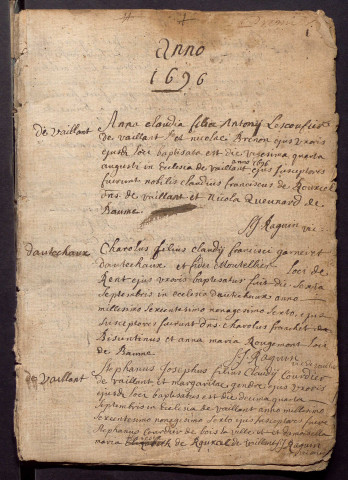 Anno
1696
de vaillant
Anna claudia filia Antonij
de vaillant et nicolae Brenon ejus uxoris
ejusd loci baptisata est die vigesima quarta
augusti in ecclesia de vaillant anno 1696 ejus susceptores
fuerunt nobilis claudius franciscus de
de vaillant et Nicola de
Baume
Raguin vic
dautechaux
Charolus filius claudij francisci garneret
dautechaux et Montellier loci de
ejus uxoris baptisatus fuit die sexta
septembris in ecclesia dautechaux anno
millesimo sexcentesimo nonagesimo sexto, ejus
susceptores fuerunt dnus Charolus
Bisuntinus et anna maria Rougemont loci
de Baume
Raguin
de vaillant
Stephanus Josephus filius Claudij
de vaillant et margaritae ejus uxoris
ejusd loci baptisatus est die decima quarta
septembris in ecclesia de vaillant anno millesimo
sexcentesimo nonagesimo sexto ejus susceptores fuere
Stephanus de et
maria de de Raguin